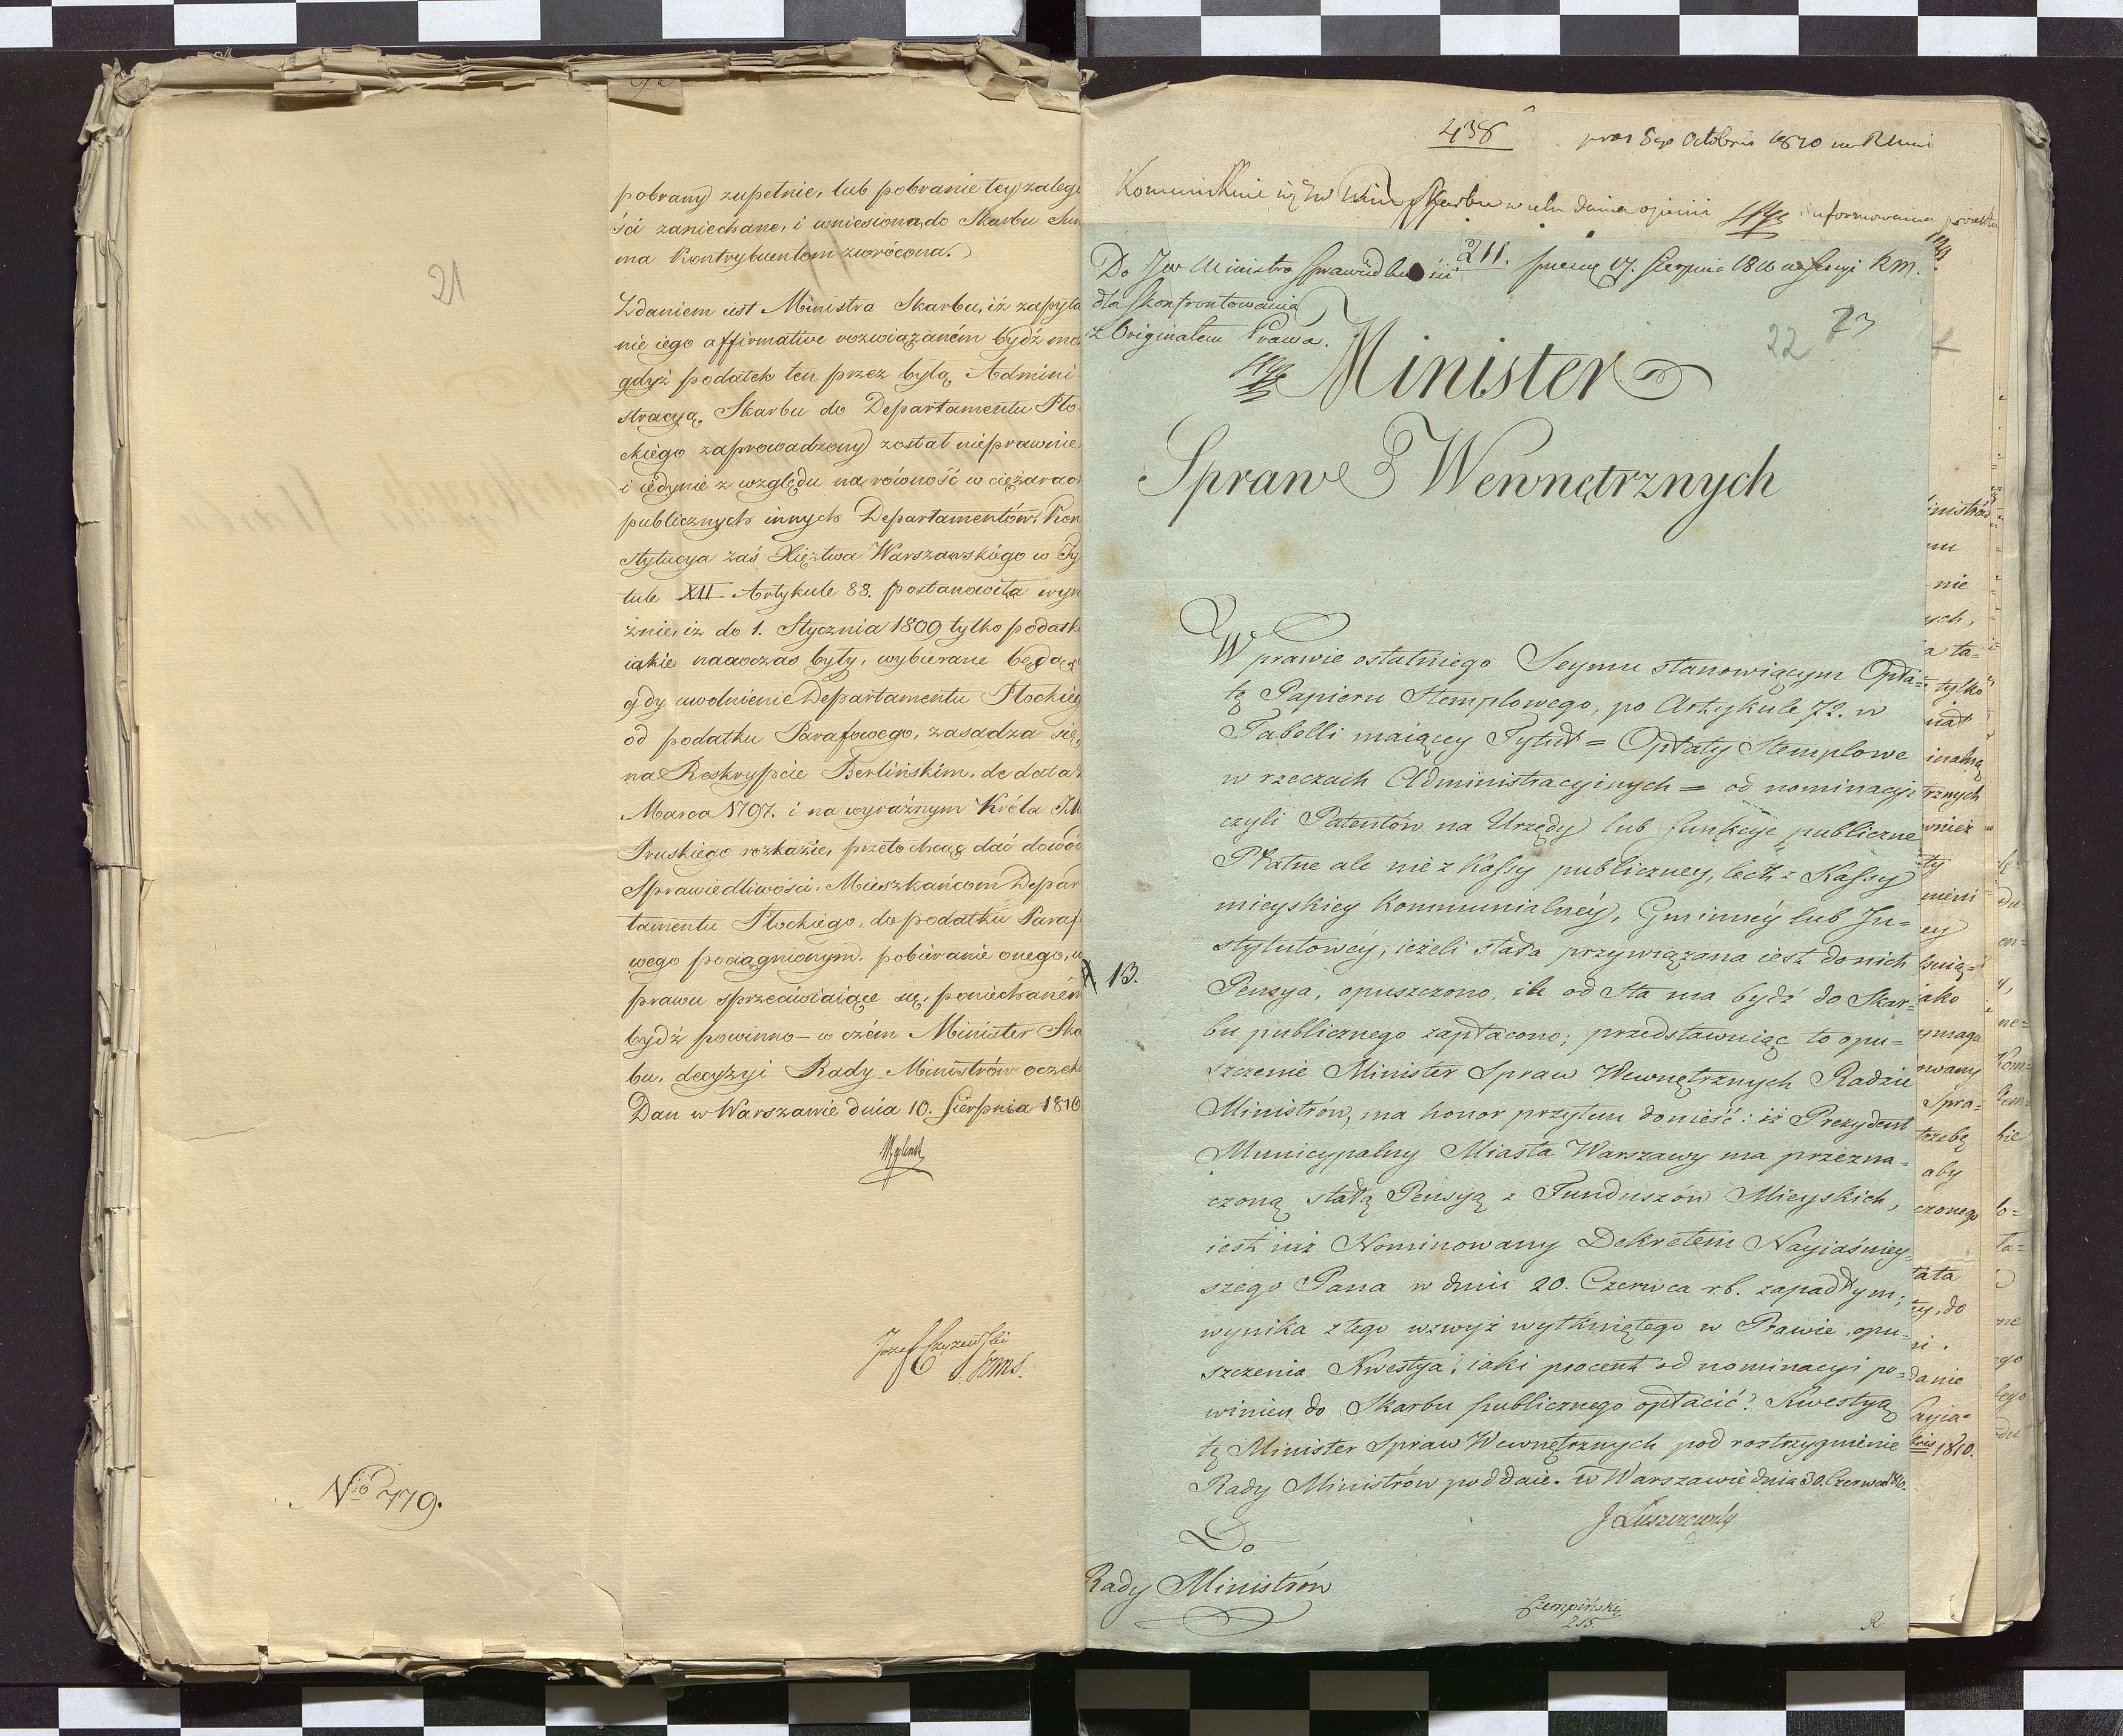 21
pobrany zupełnie, lub pobranie tey zaleg
ści zaniechane, i wniesiona do Skarbu Sum
ma Kontrybuentom zwrócona.
Zdaniem iest Ministra Skarbu, iż zapyta
nie iego affirmative rozwiązaném bydź mo
gdyż podatek ten przez byłą Admini
stracyą Skarbu do Departamentu Pło
ckiego zaprowadzony został nieprawnie
i iedynie z względu na równość w ciężarach
publicznych innych Departamentów. Kon
stytucya zaś Xięztwa Warszawskiego w Ty
tule XII Artykule 88. postanowiła wyra
źnie, iż do 1. Stycznia 1809 tylko podatki
iakie naówczas były, wybierane będą, a
gdy uwolnienie Departamentu Płockieg
od podatku Parafowego, zasadza się
na Reskrypcie Berlińskim, de dato
Marca 1797. i na wyraźnym Króla
Pruskiego rozkazie, przeto chcąc dać dowód
Sprawiedliwości, Mieszkańcom Depar
tamentu Płockiego, do podatku Paraf
wego pociągnionym, pobieranie onego,
prawu sprzeciwiaiące się, poniechaném
bydź powinno – w czém Minister Ska
bu, decyzyi Rady Ministrów oczek
Dan w Warszawie dnia 10. Sierpnia 1810
Józef
Nro 779.
438
Octobris 1810 na RMini
Skarbu w celu dania opinii
211.
Do JW Ministra Sprawiedliwości 17. Sierpnia 1810 na Sessyi R M.
dla skonfrontowania
z Originałem Prawa.
22 23
Minister
Spraw Wewnętrznych
W prawie ostatniego Seymu stanowiącym Opła=
tę Papieru Stemplowego, po Artykule 72. w
Tabelli maiącey Tytuł = Opłaty Stemplowe
w rzeczach Administracyinych = od nominacyi
czyli Patentów na Urzędy lub funkcye publiczne
Płatne ale nie z Kassy publiczney, lecz z Kassy
mieyskiey Kommunialnéy, Gminnéy lub In=
stytutowéy, ieżeli stała przywiązana iest do nich
13.
Pensya, opuszczono, ile od sta ma bydź do Skar=
bu publicznego zapłacono; przedstawuiąc to opu=
szczenie Minister Spraw Wewnętrznych Radzie
Ministrów, ma honor przytem donieść: iż Prezydent
Municypalny Miasta Warszawy ma przezna=
czoną stałą Pensyą z Funduszów Mieyskich,
iest iuż Nominowany Dekretem Nayiaśniey=
szego Pana w dniu 20. Czerwca r.b. zapadłym;
wynika z tego wzwyż wytkniętego w Prawie opu=
szczenia Kwestya, iaki procent od nominacyi po=
winien do Skarbu publicznego opłacić? Kwestyą
tę Minister Spraw Wewnętrznych pod roztrzygnienie
Rady Ministrów poddaie. w Warszawie dnia 30. Czerwca 1810.
J Łuszczewski
Do
Rady Ministrów
Czempiński
215.
R